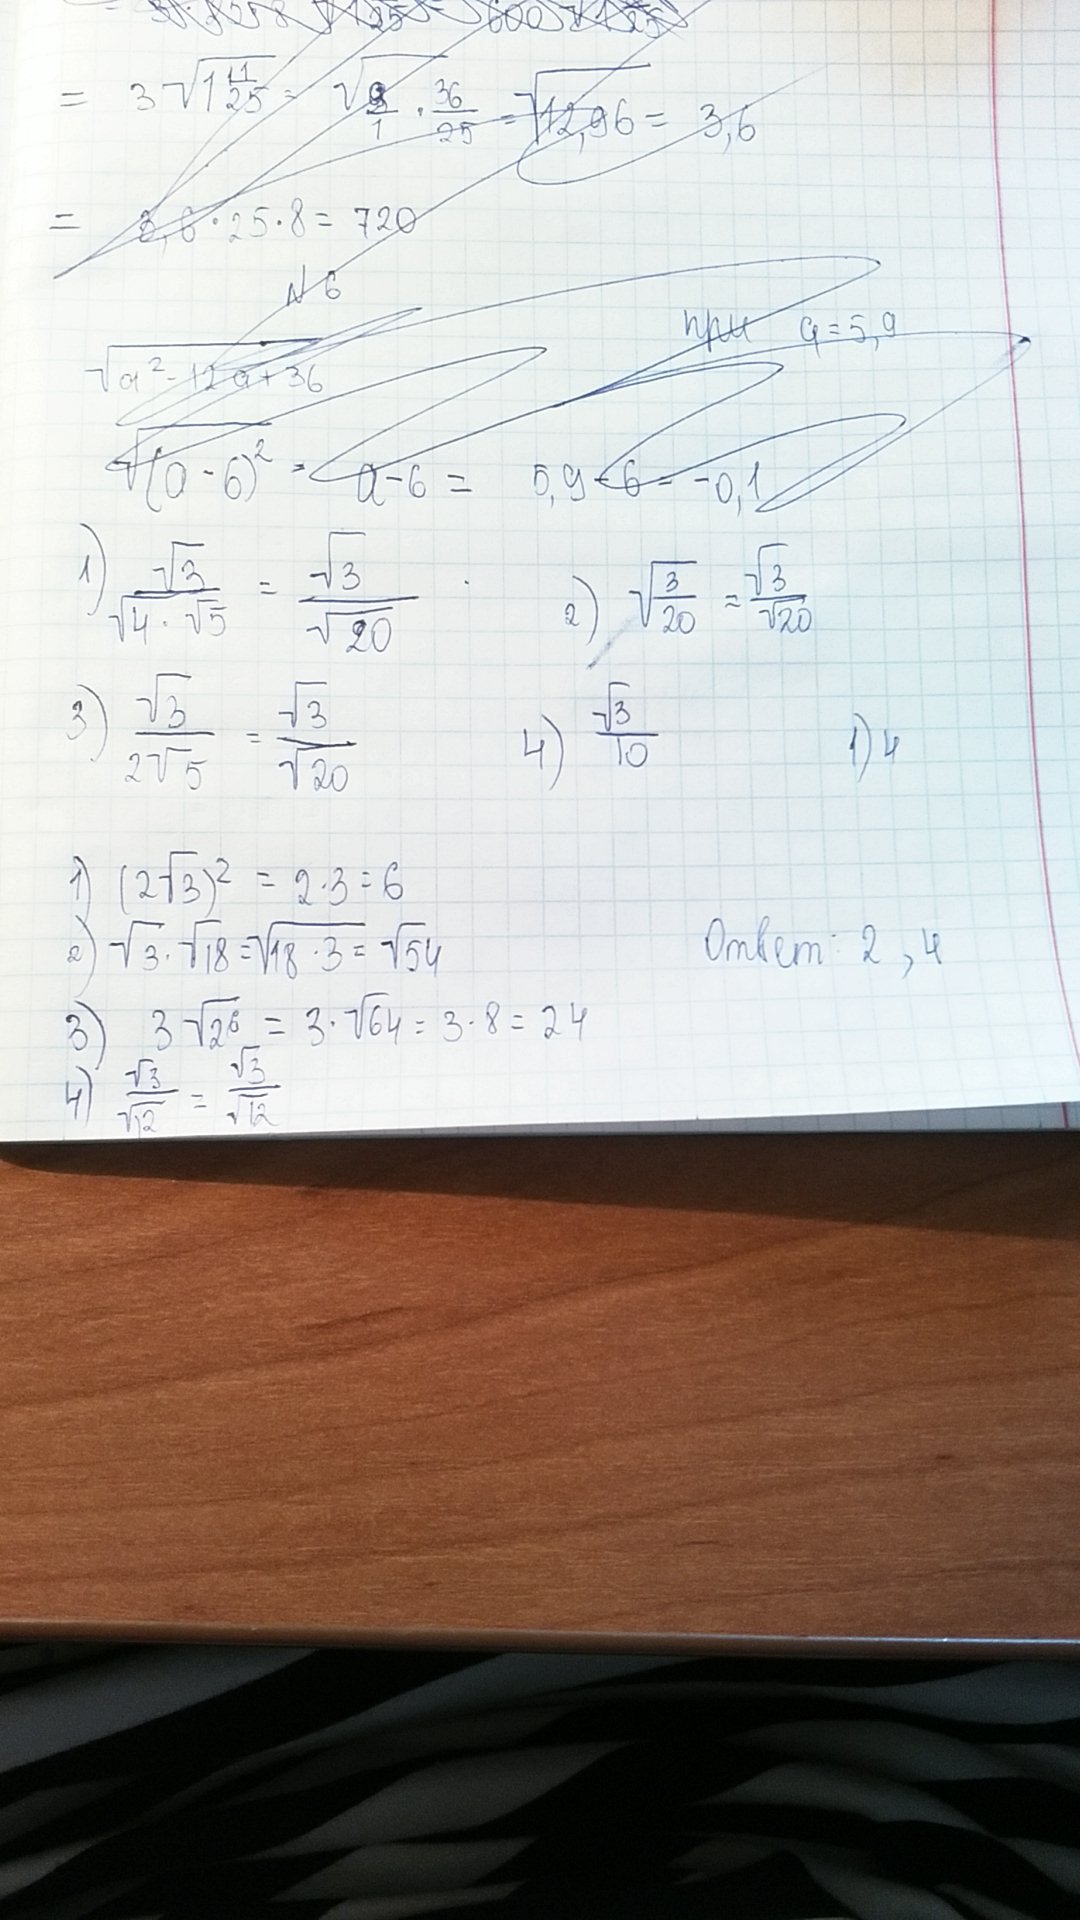 = 3√1 11/25 = √9/1 · 36/25 = √12,96 = 3,6
= 3,6 · 25 · 8 = 720
№6
√a² - 12a + 36 при a = 5,9
√(a - 6)² = a - 6 = 5,9 - 6 = -0,1
1) √3/√4 · √5 = √3/√20 2) √3/20 = √3/√20
3) √3/2√5 = √3/√20 4) √3/10 1) 4
1) (2√3)² = 2 · 3 = 6
2) √3 · √18 = √18 · 3 = √54 Ответ: 2, 4
3) 3√2⁶ = 3 · √64 = 3 · 8 = 24
4) √3/√12 = √3/√12